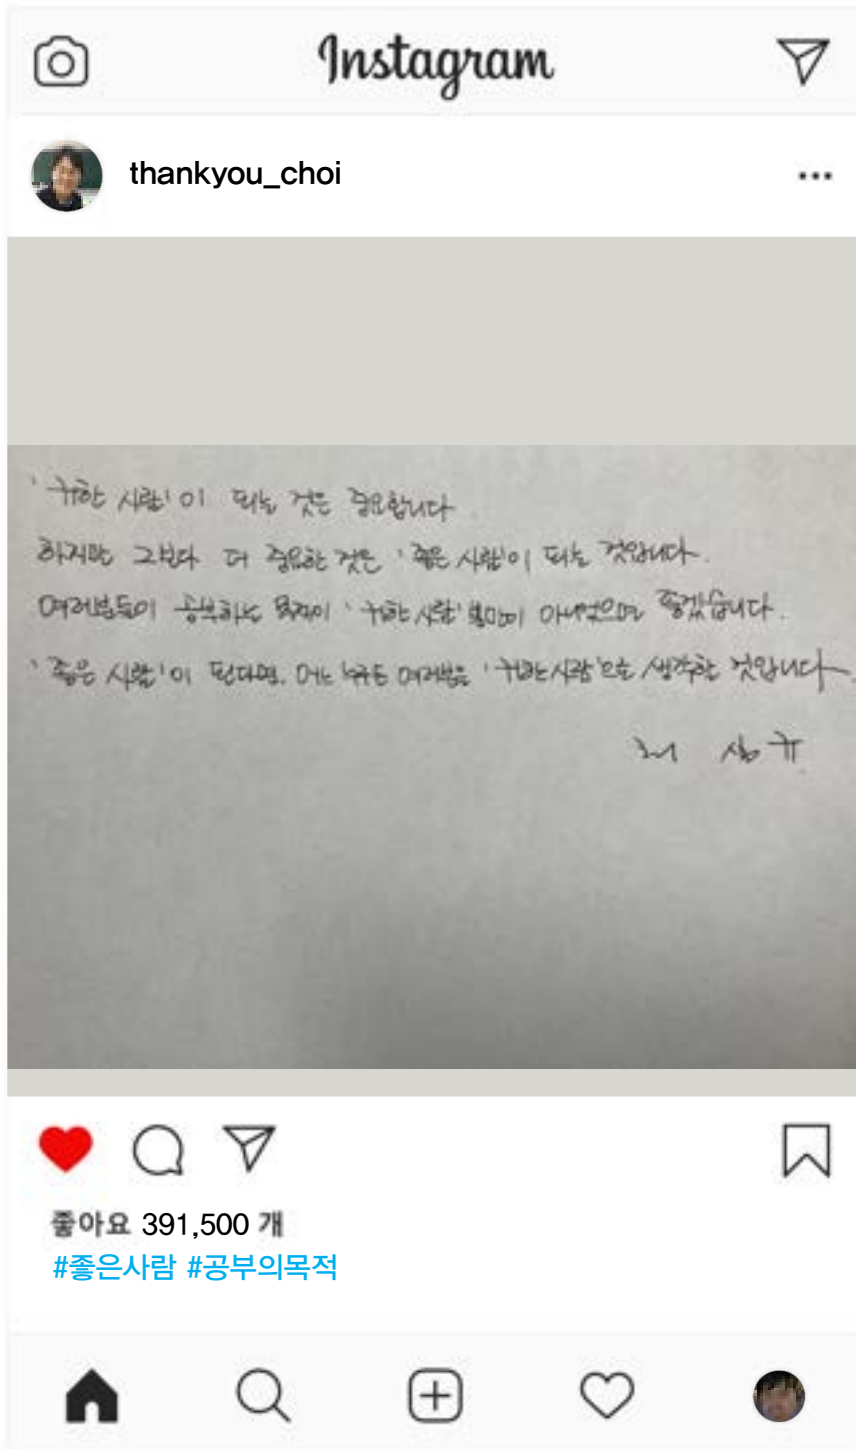 Instagram
thankyou_choi
'귀한 사람'이 되는 것은 중요합니다
하지만 그보다 더 중요한 것은 '좋은 사람'이 되는 것입니다.
여러분들이 공부하는 목적이 '귀한 사람'뿐만이 아니었으면 좋겠습니다.
'좋은 사람'이 된다면, 어느 누구든 여러분을 '귀한 사람'으로 생각할 것입니다.
최 상규
좋아요 391,500 개
#좋은사람 #공부의목적